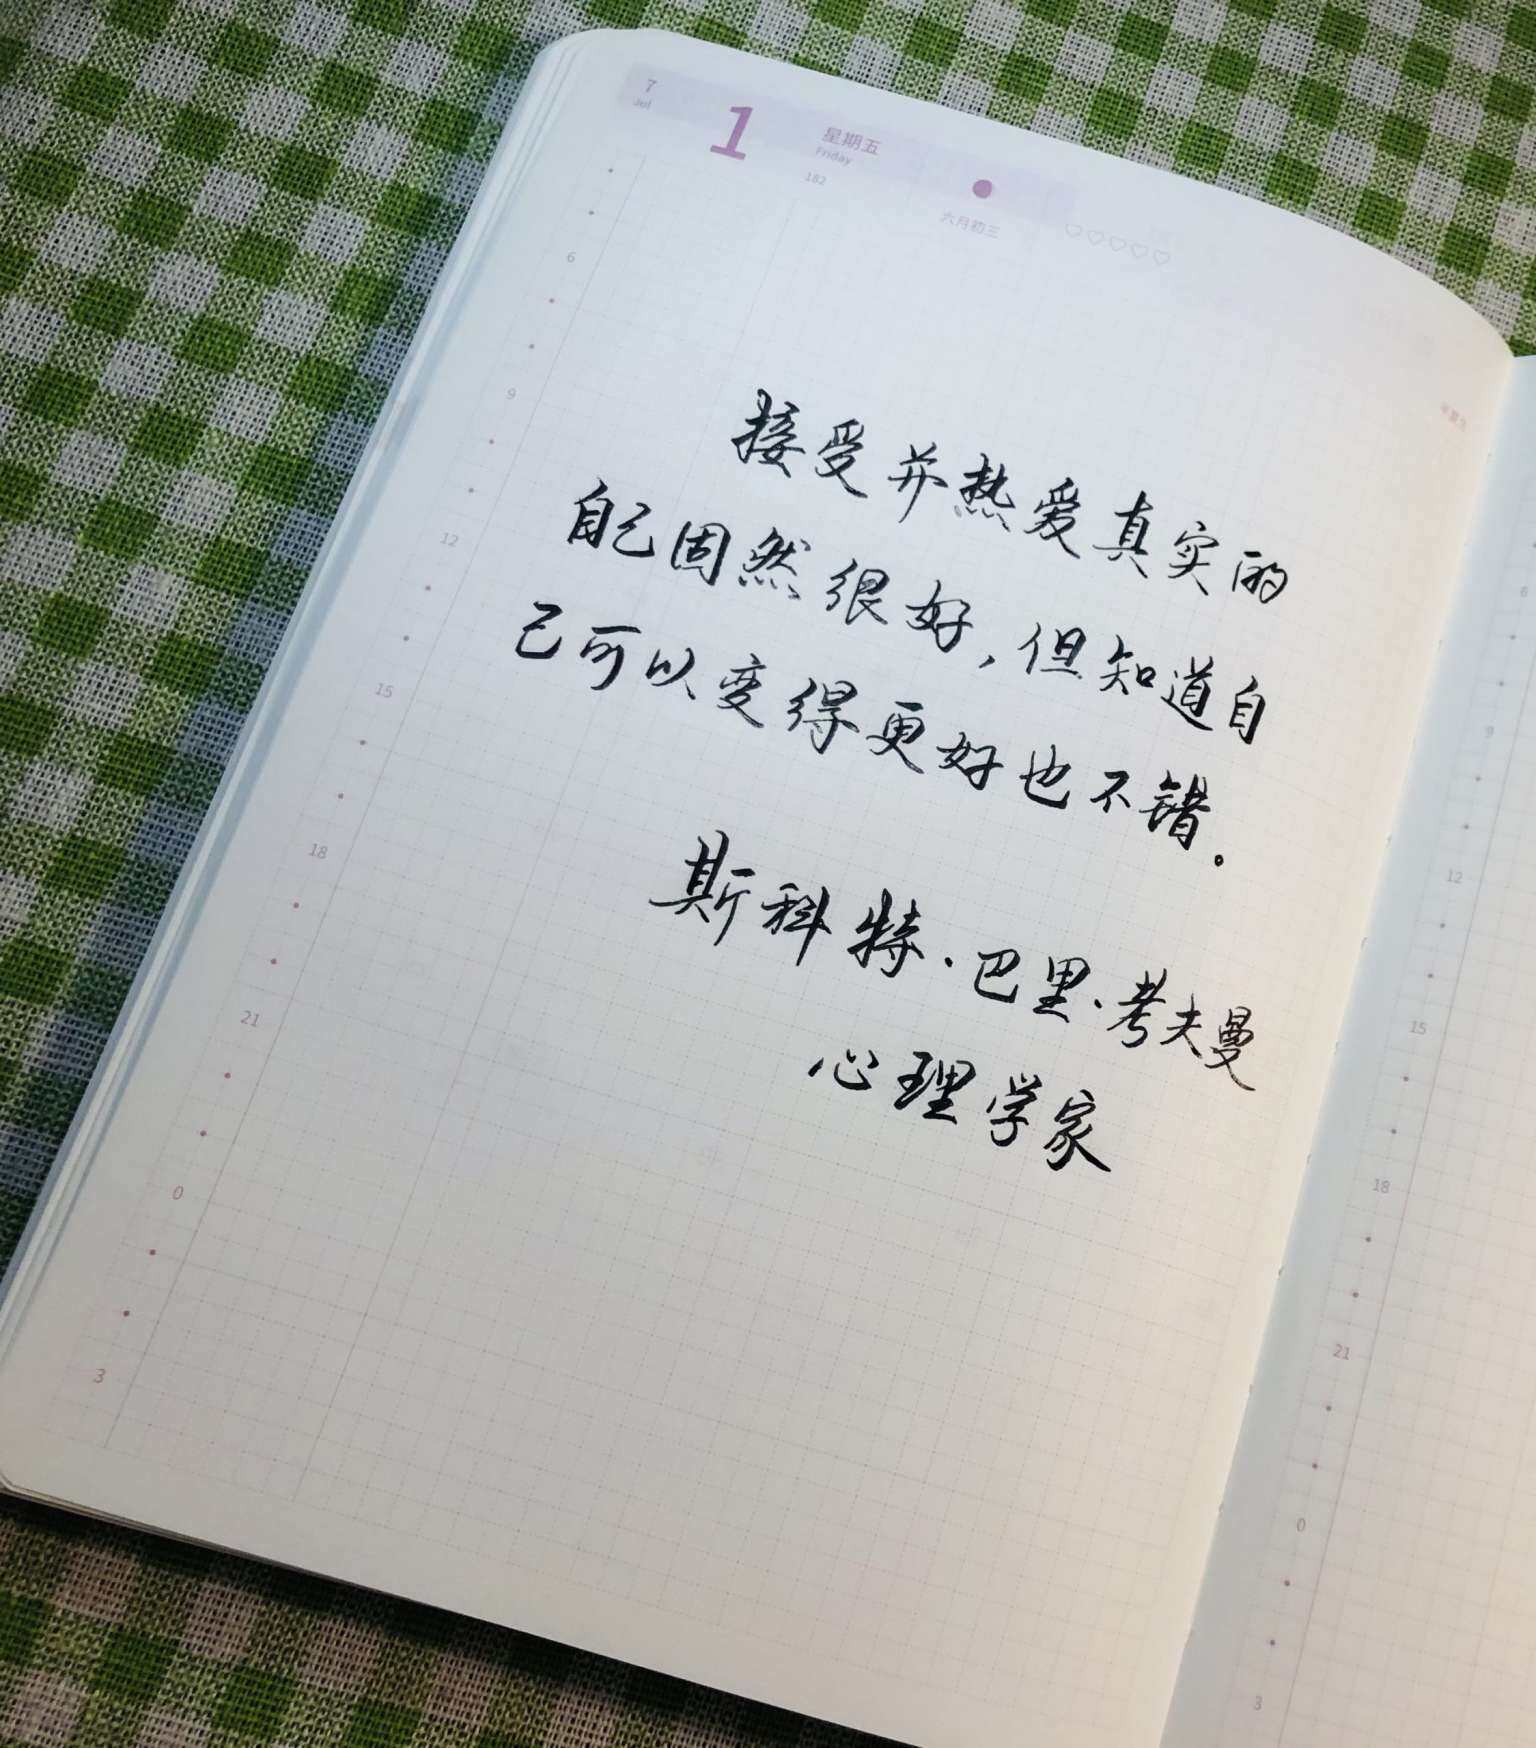 7
Jul
1
星期五
Friday
182
六月初三
接受并热爱真实的
自己固然很好，但知道自
己可以变得更好也不错。
斯科特·巴里·考夫曼
心理学家
6
9
12
15
18
21
0
3
6
9
12
15
18
21
0
3